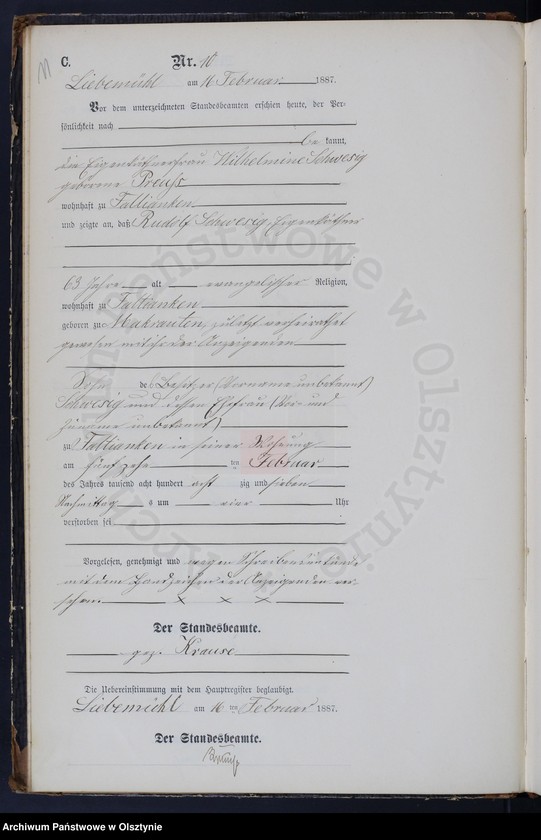 C. Nr. 10
Liebemühl am 16 Februar 1887.
Vor dem unterzeichneten Standesbeamten erschien heute, der Per-
sönlichkeit nach
be kannt,
die Eigenkäthnerfrau Wilhelmine Schwesig
geborene Preuß
wohnhaft zu Taltianken
und zeigte an, daß Rudolf Schwesig, Eigenkäthner
63 Jahre alt evangelischer Religion,
wohnhaft zu Taltianken
geboren zu Makrauten, zuletzt verheirathet
gewesen mit ihr der Anzeigenden
Sohn des Besitzer (Vorname unbekannt)
Schwesig und dessen Ehefrau (Vor- und
Zuname unbekannt)
zu Taltianken in seiner Wohnung
am fünfzehn ten Februar
des Jahres tausend acht hundert acht zig und sieben
Nachmittag s um vier Uhr
verstorben sei
Vorgelesen, genehmigt und wegen Schreibensunkunde
mit dem Handzeichen der Anzeigenden ver-
sehen x x x
Der Standesbeamte.
gez. Krause
Die Uebereinstimmung mit dem Hauptregister beglaubigt.
Liebemühl am 16 ten Februar 1887.
Der Standesbeamte.
Krause
Archiwum Państwowe w Olsztynie
Archiwum Państwowe w Olsztynie